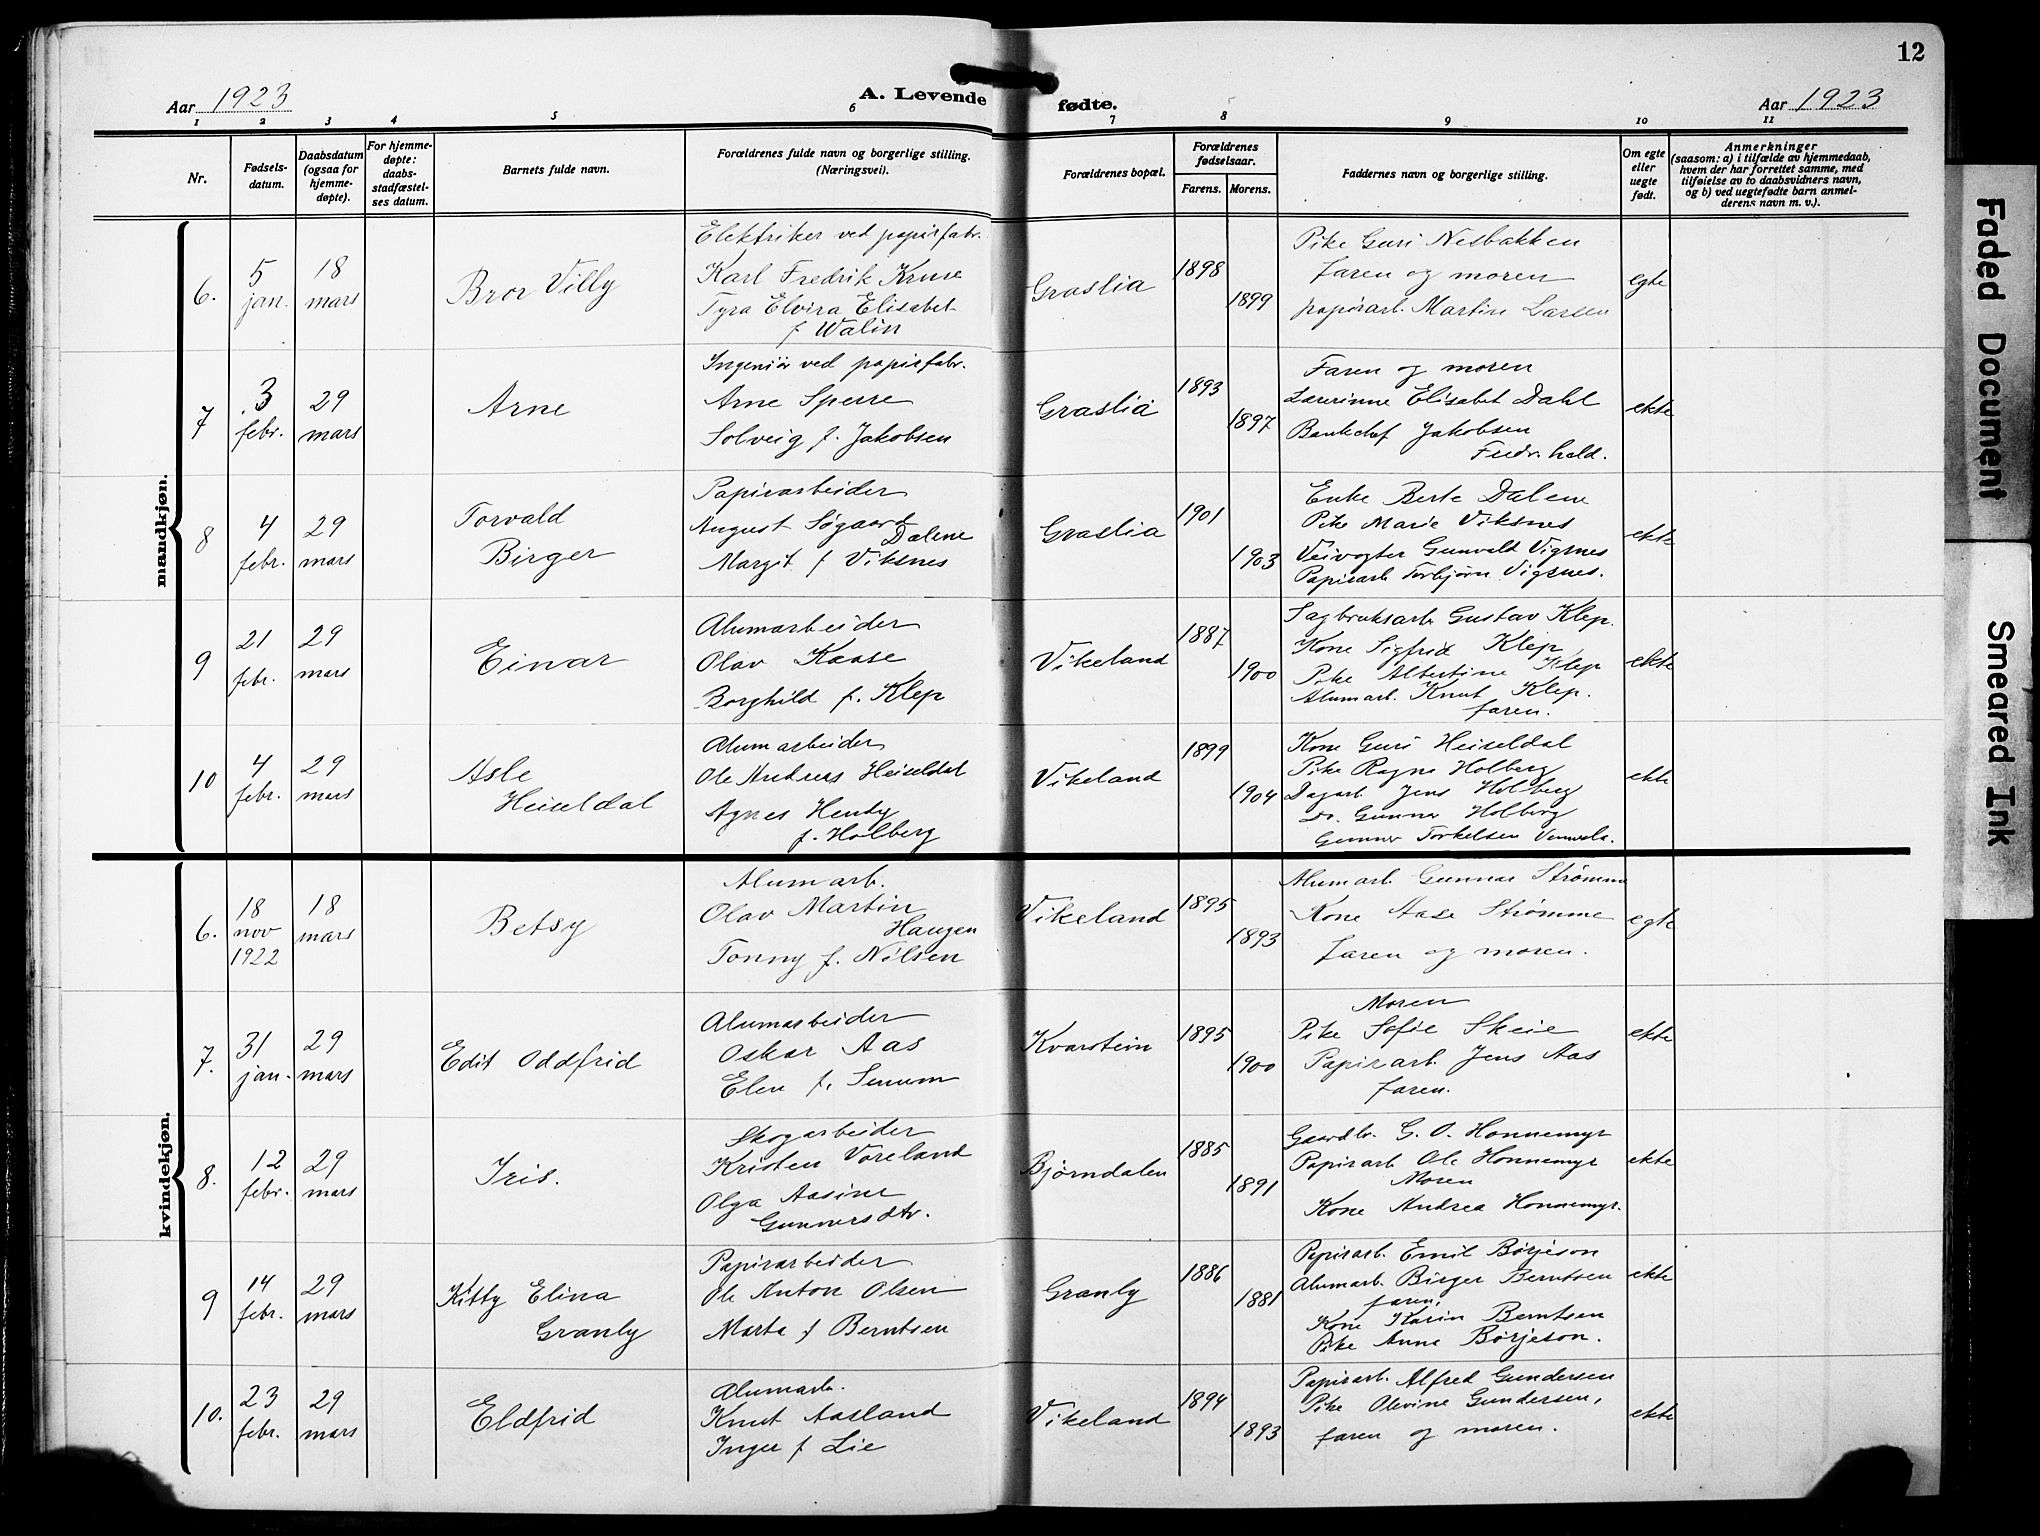 12
Aar 1923
A. Levende
fødte.
Aar 1923
1 2 3 4 5 6 7 8 9 10 11
Nr.
Fødsels-
datum.
Daabsdatum
(ogsaa for
hjemme-
døpte).
For hjemme-
døpte:
daabs-
stadfæstel-
ses datum.
Barnets fulde navn.
Forældrenes fulde navn og borgerlige stilling.
(Næringsvei).
Forældrenes bopæl.
Forældrenes
fødselsaar.
Farens. Morens.
Faddernes navn og borgerlige stilling.
Om egte
eller
uegte
født.
Anmerkninger
(saasom: a) i tilfælde av hjemmedaab,
hvem der har forrettet samme, med
tilføielse av to daabsvidners navn,
og b) ved uegtefødte barn anmel-
derens navn m. v.).
mandkjøn.
6.
5
jan.
18
mars
Bror Villy
Elektriker ved papirfabr.
Karl Fredrik Kruse
Tyra Elvira Elisabet
f Walin
Graslia
1898
1899
Pike Guri Nesbakken
faren og moren
papirarb. Martin Larsen
egte
7
3
febr.
29
mars
Arne
Ingeniør ved papirfabr.
Arne Sperre
Solveig f. Jakobsen
Graslia
1893
1897
Faren og moren
Lærerinne Elisabet Dahl
Bankchef Jakobsen
Fredr.hald.
ekte
8
4
febr.
29
mars
Torvald
Birger
Papirarbeider
August Søgaard
Dalene
Margit f Viksnes
Graslia
1901
1903
Enke Berte Dalene
Pike Marie Viksnes
Veivogter Gunvald Vigsnes
Papirarb Torbjørn Vigsnes.
ekte
9
21
febr.
29
mars
Einar
Alumarbeider
Olav Kaase
Borghild f. Klep
Vikeland
1887
1900
Sagbruksarb Gustav Klep.
Kone Sigfrid Klep,
Pike Albertine Klep
Alumarb. Knut Klep.
faren.
ekte
10
4
febr.
29
mars
Asle
Heiseldal
Alumarbeider
Ole Andreas Heiseldal
Agnes Henny
f. Holberg
Vikeland
1899
1904
Kone Guri Heiseldal
Pike Ragna Holberg
Dagarb Jens Holberg
Do. Gunnar Holberg
Gunnar Torkelsen Vennesla.
ekte
kvindekjøn.
6.
18
nov
1922
18
mars
Betsy
Alumarb.
Olav Martin
Haugen
Tonny f. Nilsen
Vikeland
1895
1893
Alumarb. Gunnar Strømme
Kone Aase Strømme
faren og moren.
egte
7.
31
jan.
29
mars
Edit Oddfrid
Alumarbeider
Oskar Aas
Elen f. Senum
Kvarstein
1895
1900
Moren
Pike Sofie Skeie
Papirarb. Jens Aas
faren.
ekte
8.
12
febr.
29
mars
Iris.
Skogarbeider
Kristen Voreland
Olga Aasine
Gunnarsdtr.
Bjørndalen
1885
1891
Gaardbr. G. O. Honnemyr
Papirarb Ole Honnemyr
Moren
Kone Andrea Honnemyr.
ekte
9
14
febr.
29
mars
Kitty Elina
Granly
Papirarbeider
Ole Anton Olsen
Marta f Berntsen
Granly
1886
1881
Papirarb. Emil Børjeson
Alumarb. Birger Berntsen
faren,
Kone Karin Berntsen
Pike Anna Børjeson.
ekte
10.
23
febr.
29
mars
Eldfrid
Alumarb.
Knut Aasland
Inger f Lie
Vikeland
1894
1893
Papirarb. Alfred Gundersen
Pike Olevine Gundersen,
faren og moren.
ekte
Faded Document
Smeared Ink